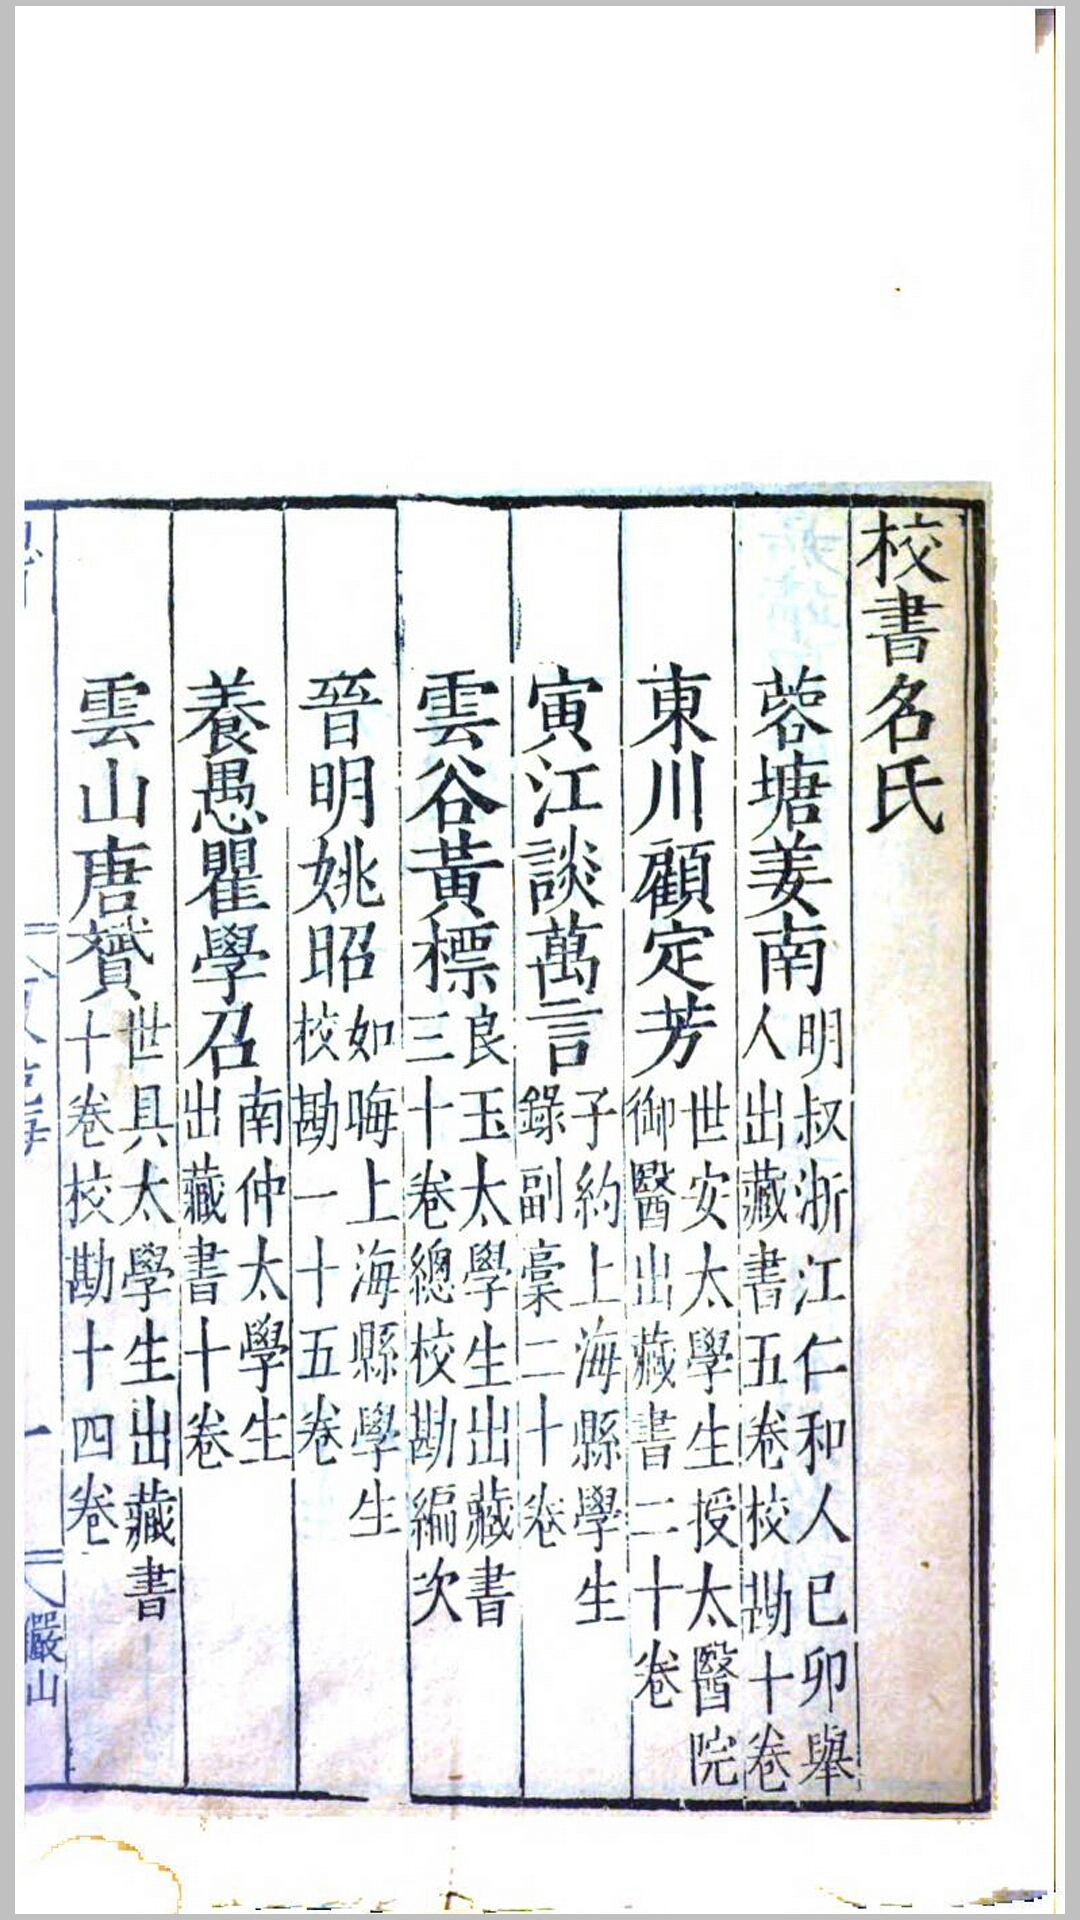 校書名氏
蓉塘姜南明叔浙江仁和人已卯舉人出藏書五卷校勘十卷
東川顧定芳世安太學生授太醫院御醫出藏書二十卷
寅江談萬言子約上海縣學生錄副稾二十卷
雲谷黃標良玉太學生出藏書三十卷總校勘編次
晉明姚昭如晦上海縣學生校勘一十五卷
養愚瞿學召南仲太學生出藏書十卷
雲山唐贇世具太學生出藏書十卷校勘十四卷
儼山